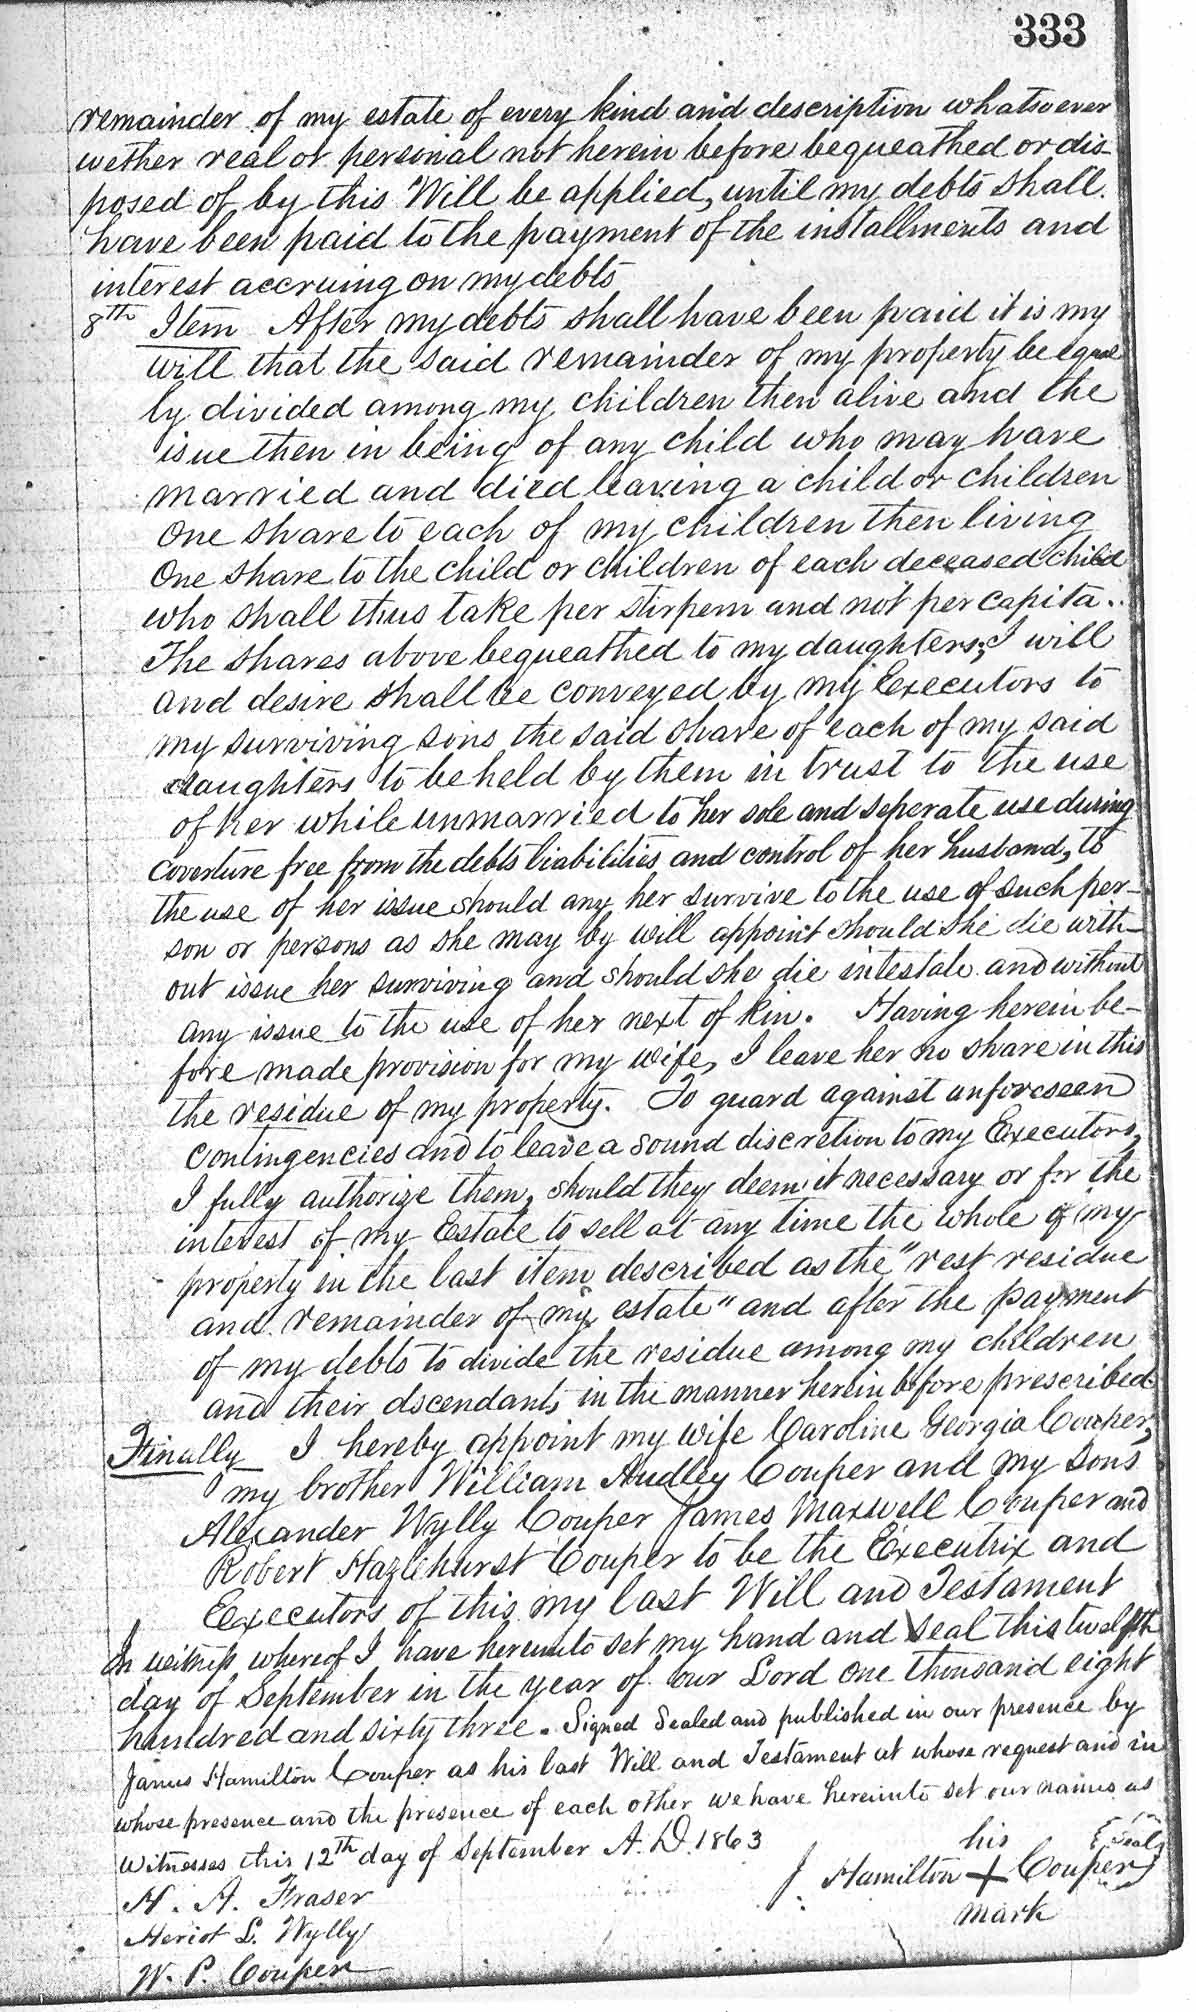 333
remainder of my estate of every kind and description whatsoever
wether real or personal not herein before bequeathed or dis-
posed of by this Will be applied, until my debts shall
have been paid to the payment of the installments and
interest accruing on my debts
8th Item After my debts shall have been paid it is my
will that the said remainder of my property be equal
ly divided among my children then alive and the
isue then in being of any child who may have
married and died leaving a child or children
One share to each of my children then living
One share to the child or children of each deceased child
who shall thus take per stirpem and not per capita..
The shares above bequeathed to my daughters; I will
and desire shall be conveyed by my Executors to
my surviving sons the said share of each of my said
daughters to be held by them in trust to the use
of her while unmarried to her sole and seperate use during
coverture free from the debts liabilities and control of her husband, to
the use of her issue should any her survive to the use of such per-
son or persons as she may by will appoint should she die with-
out issue her surviving and should she die intestate and without
any issue to the use of her next of kin. Having herein be-
fore made provision for my wife, I leave her no share in this
the residue of my property. To guard against unforeseen
contingencies and to leave a sound discretion to my Executors,
I fully authorize them, should they deem it necessary or for the
interest of my Estate to sell at any time the whole of my
property in the last item described as the "rest residue
and remainder of my estate" and after the payment
of my debts to divide the residue among my children
and their dscendants in the manner herein before prescribed.
Finally I hereby appoint my wife Caroline Georgia Couper,
my brother William Audley Couper and my sons
Alexander Wylly Couper James Maxwell Couper and
Robert Hazlehurst Couper to be the Executrix and
Executors of this my last Will and Testament
In witness whereof I have hereunto set my hand and seal this twelfth
day of September in the year of our Lord one thousand eight
hundred and sixty three. Signed Sealed and published in our presence by
James Hamilton Couper as his last Will and Testament at whose request and in
whose presence and the presence of each other we have hereunto set our names as
Witnesses this 12th day of September A.D. 1863
his
J. Hamilton + Couper {Seal}
mark
H. A. Fraser
Heriot L. Wylly
W. P. Couper